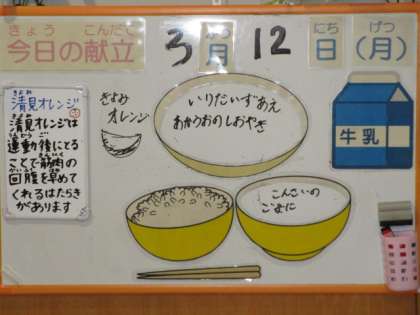 きょう こんだて
今日の献立
3 がつ
月
12
にち
日
げつ
(月)
きよみ
清見オレンジ
きよみ
清見オレンジは
うんどうご
運動後にてる
きんにく
ことで筋肉の
かいふく はや
回腹を早めて
くれるはたらき
があります
きよみ
オレンジ
いりだいずあえ
あかうおのしおやき
牛乳
こんさいの
ごまに